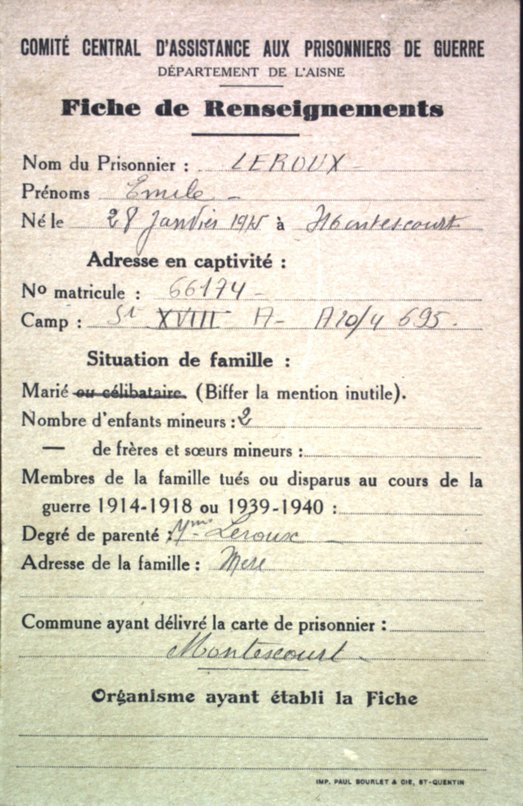 COMITÉ CENTRAL D'ASSISTANCE AUX PRISONNIERS DE GUERRE
DÉPARTEMENT DE L'AISNE
Fiche de Renseignements
Nom du Prisonnier : LEROUX
Prénoms Emile
Né le 28 Janvier à Montescourt
Adresse en captivité :
No matricule : 66174
Camp : St XVIII A - A20/4 695.
Situation de famille :
Marié ou célibataire. (Biffer la mention inutile).
Nombre d'enfants mineurs : 2
— de frères et sœurs mineurs :
Membres de la famille tués ou disparus au cours de la
guerre 1914-1918 ou 1939-1940 :
Degré de parenté : Mme Leroux
Adresse de la famille : Mere
Commune ayant délivré la carte de prisonnier :
Montescourt
Organisme ayant établi la Fiche
IMP. PAUL BOURLET & CIE, ST-QUENTIN